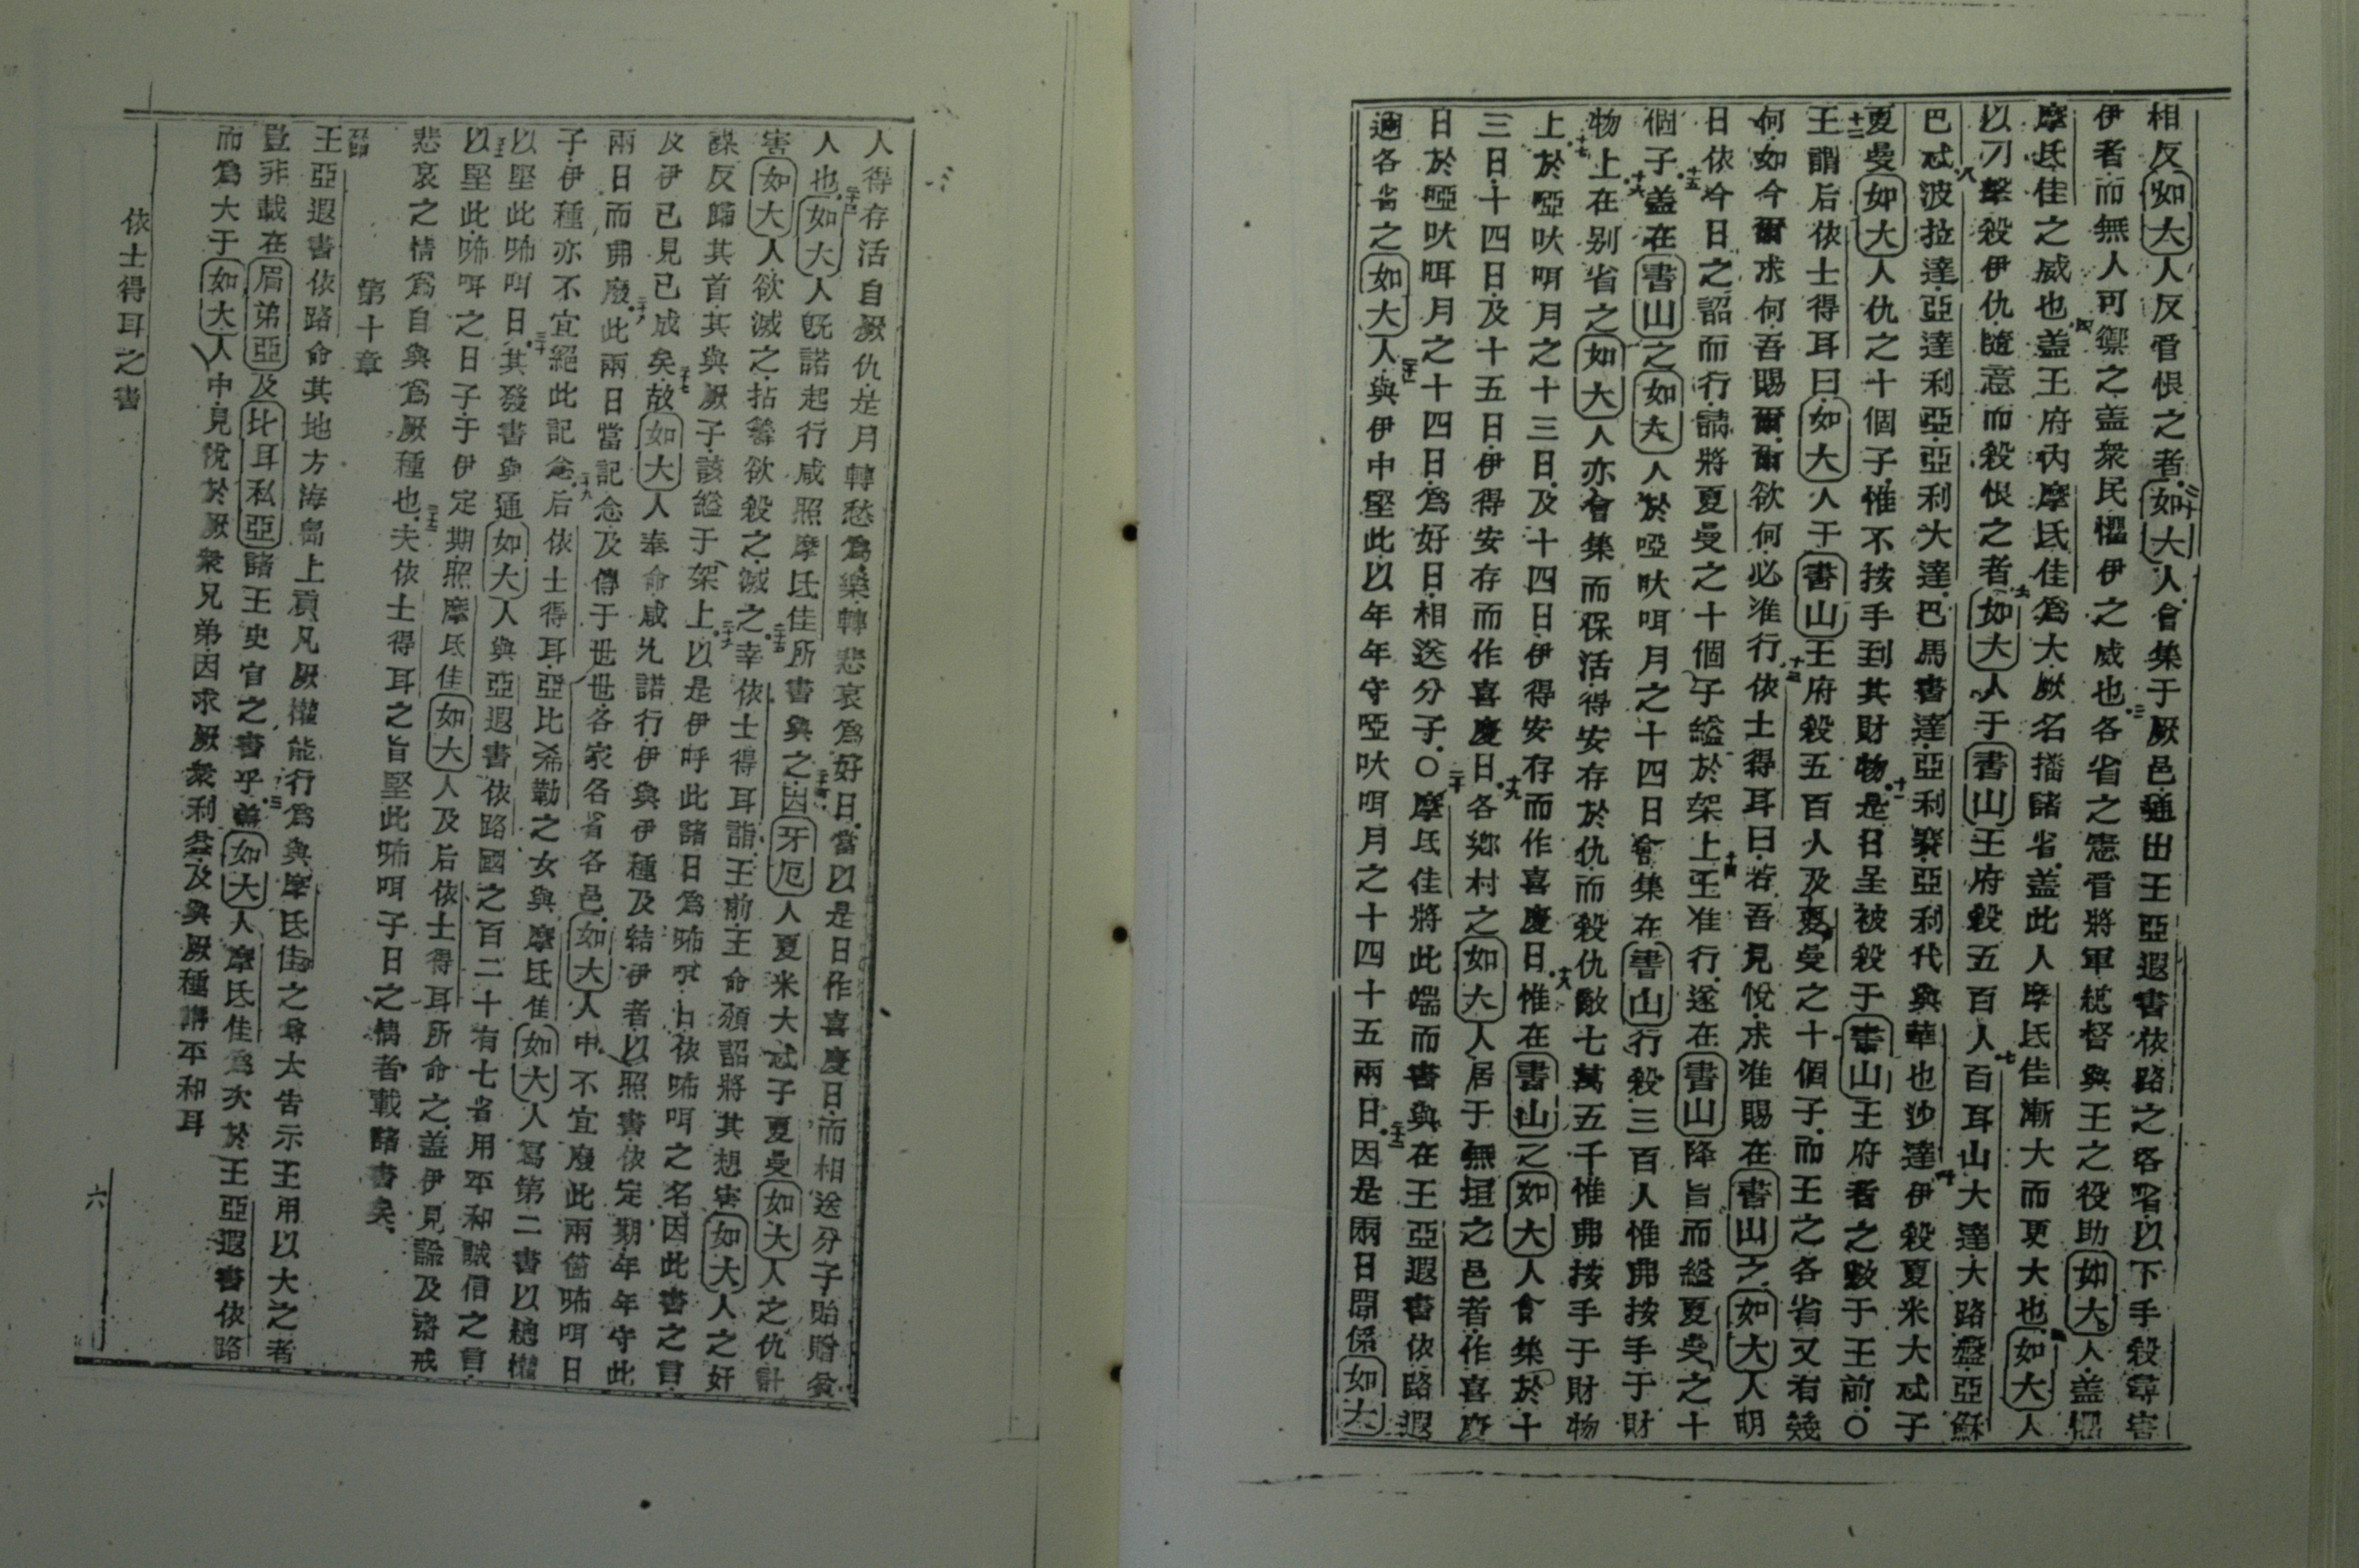 相反如大人反看恨之者如大人會集于厥邑通出王亞遐書依路之各省以下手殺尋害
伊者而無人可禦之盖衆民懼伊之威也各省之憲看將軍總督與王之役助如大人盖懼
摩氐佳之威也盖王府內摩氐佳爲大厥名播諸省盖此人摩氐佳漸大而更大也如大人
以刀擊殺伊仇隨意而殺恨之者如大人于書山王府殺五百人百耳山大達大路盤亞蘇
巴忒波拉達亞達利亞亞利大達巴馬書達亞利賽亞利代與華也沙達伊殺夏米大忒子
夏曼如大人仇之十個子惟不按手到其財物是日呈被殺于書山王府者之數于王前○
王謂后依士得耳曰如大人于書山王府殺五百人及夏曼之十個子而王之各省又有幾
何如今爾求何吾賜爾爾欲何必准行依士得耳曰若吾見悅求准賜在書山之如大人明
日依今日之詔而行請將夏曼之十個子縊於架上王准行遂在書山降旨而縊夏曼之十
個子盖在書山之如大人於啞吠咡月之十四日會集在書山行殺三百人惟弗按手于財
物上在别省之如大人亦會集而保活得安存於仇而殺仇敵七萬五千惟弗按手于財物
上於啞吠咡月之十三日及十四日伊得安存而作喜慶日惟在書山之如大人會集於十
三日十四日及十五日伊得安存而作喜慶日各鄉村之如大人居于無垣之邑者作喜慶
日於啞吠咡月之十四日爲好日相送分子○摩氐佳將此端而書與在王亞遐書依路遐
邇各省之如大人與伊中堅此以年年守啞吠咡月之十四十五兩日因是兩日間係如大
人得存活自厥仇是月轉愁爲樂轉悲哀爲好日當以是日作喜慶日而相送分子貽贈貧
人也如大人旣諾起行咸照摩氐佳所書與之因牙厄人夏米大忒子夏曼如大人之仇計
害如大人欲滅之拈籌欲殺之滅之幸依士得耳詣王前王命頒詔將其想害如大人之奸
謀反歸其首其與厥子該縊于架上以是伊呼此諸日爲㖊咡日依㖊咡之名因此書之言
及伊已見已成矣故如大人奉命咸允諾行伊與伊種及結伊者以照書依定期年年守此
兩日而弗廢此兩日當記念及傳于世世各家各省各邑如大人中不宜廢此兩箇㖊咡日
子伊種亦不宜絕此記念后依士得耳亞比希勒之女與摩氐佳如大人寫第二書以總權
以堅此㖊咡日其發書與通如大人與亞遐書依路國之百二十有七省用平和誠信之言
以堅此㖊咡之日子于伊定期照摩氐佳如大人及后依士得耳所命之盖伊見諭及齋戒
悲哀之情爲自與爲厥種也夫依士得耳之旨堅此㖊咡子日之情者載諸書矣
第十章
王亞遐書依路命其地方海島上貢凡厥權能行爲與摩氐佳之尊大告示王用以大之者
豈非載在眉弟亞及比耳私亞諸王史官之書乎盖如大人摩氐佳爲次於王亞遐書依路
而爲大于如大人中見悅於厥衆兄弟因求厥衆利益及與厥種講平和耳
依士得耳之書
六